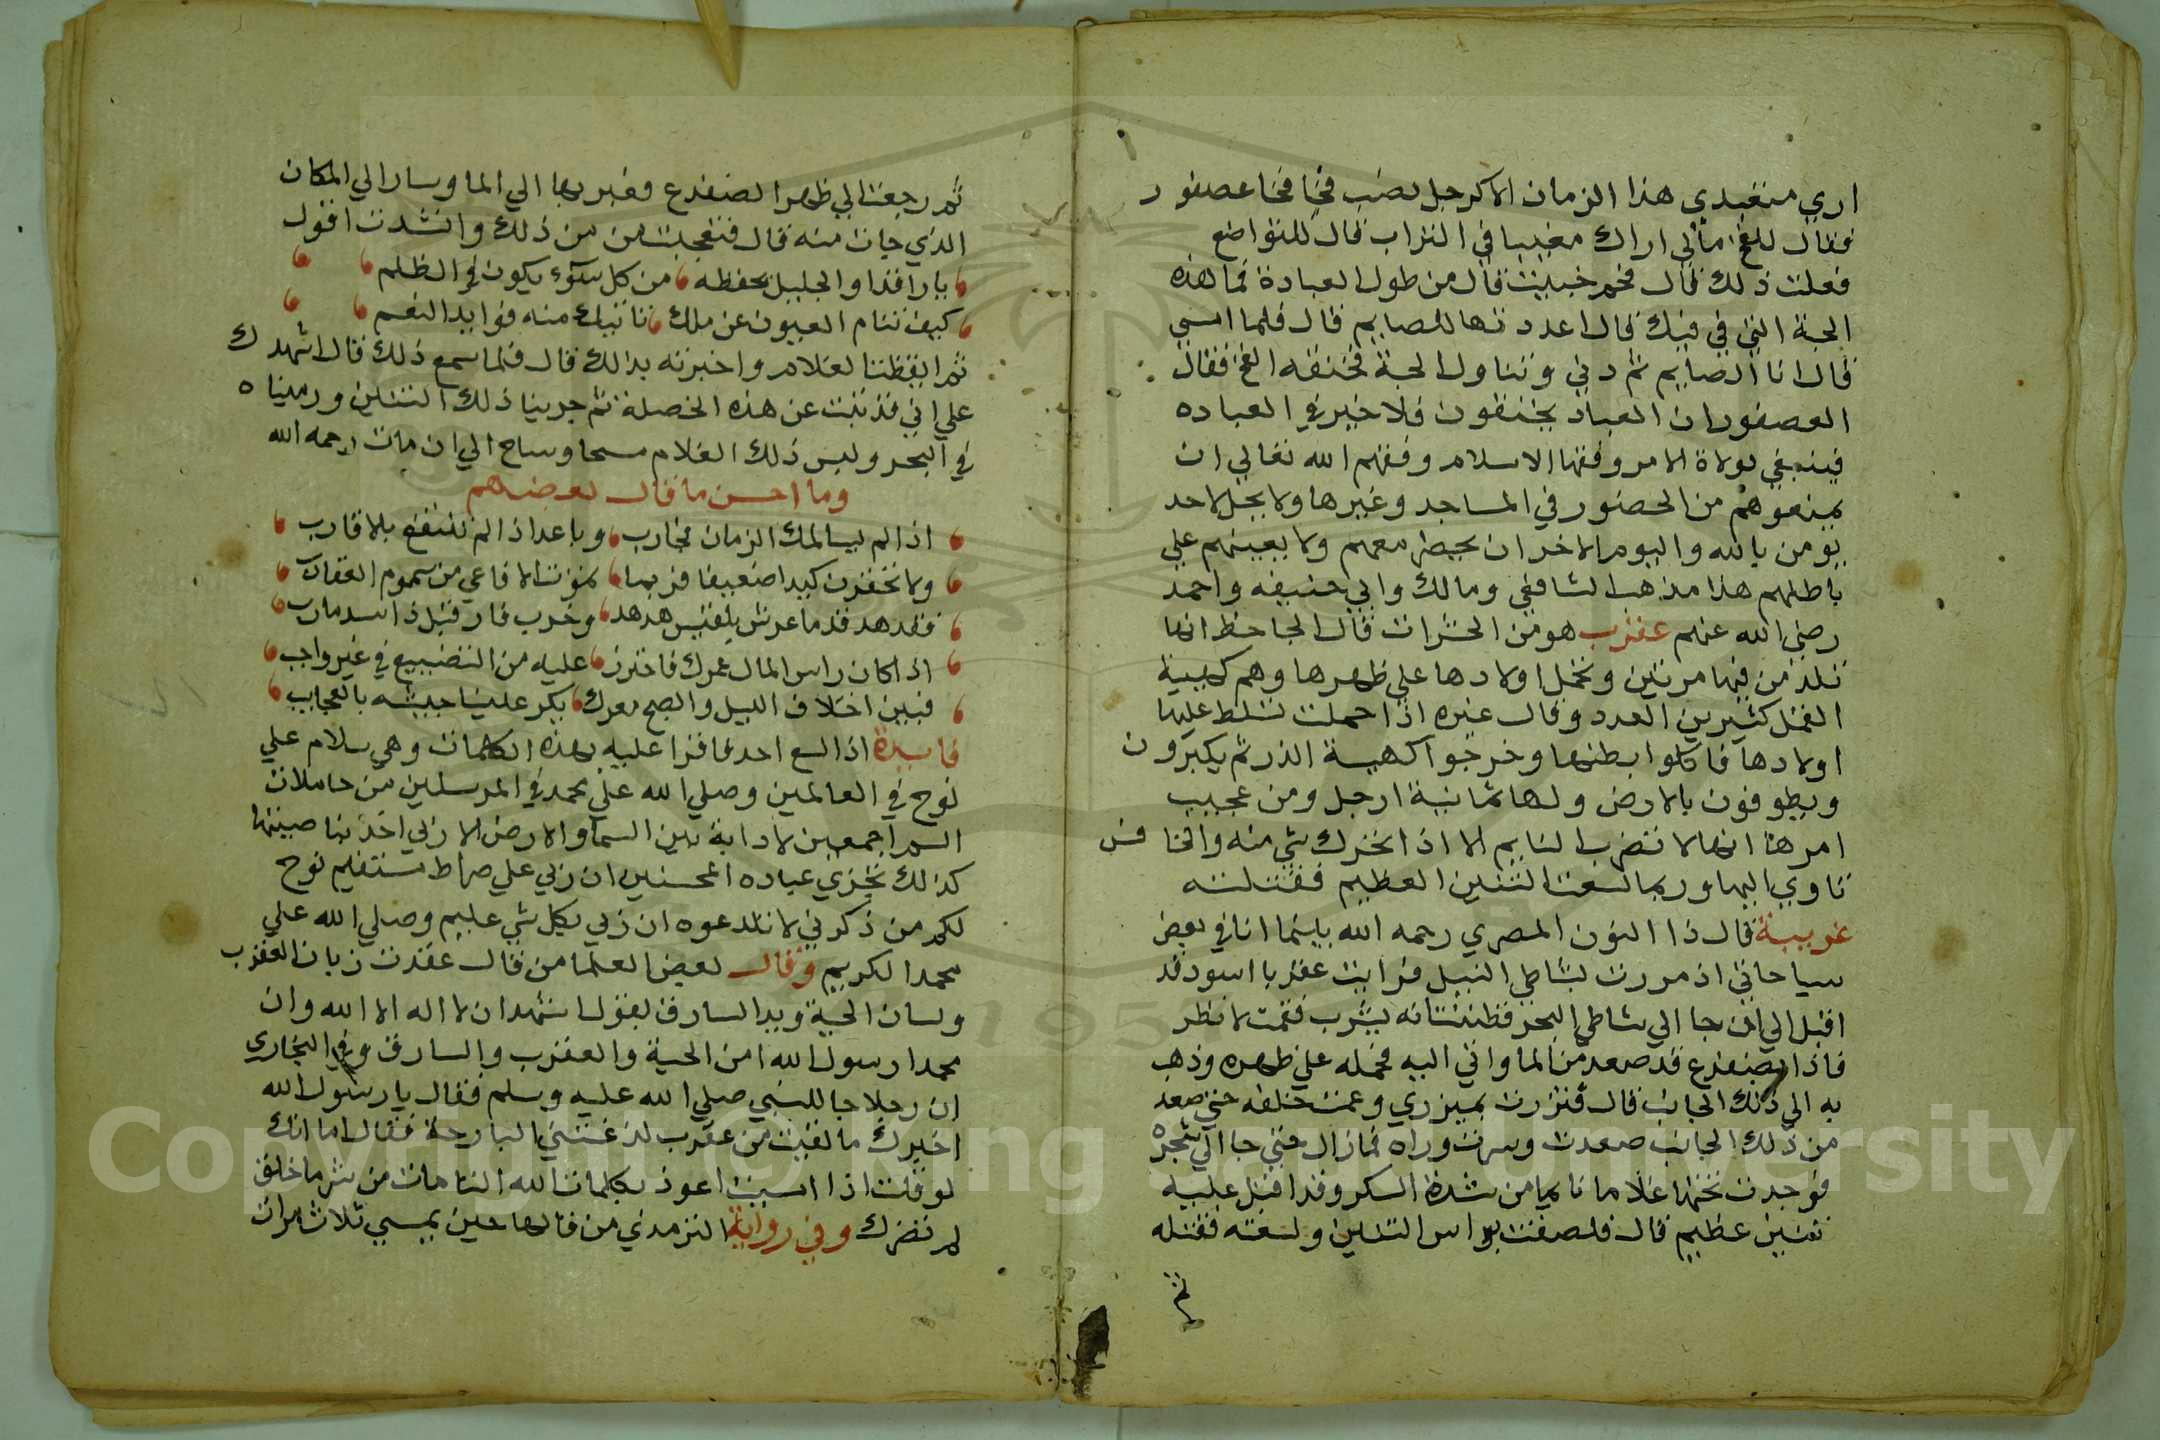 اري متعبدي هذا الزمان الا كرجل نصب فخا فجا عصفور
فقال للفخ مالي اراك مغيبا في التراب قال للتواضع
فعلت ذلك قال فمم خبيت قال من طول العبادة فما هذه
الحبة التي في فيك قال اعددتها للصايم قال فلما امسي
قال انا الصايم ثم دني وتناول الحبة فخنقه الفخ فقال
العصفور ان العباد يخنقون فلا خير في العباده
فينبغي لولاة الامر وفقها الاسلام وفقهم الله تعالي ان
يمنعوهم من الحضور في المساجد وغيرها ولا يحل لاحد
يومن بالله واليوم الاخر ان يحضر معهم ولا يعينهم علي
باطلهم هذا مذهب الشافعي ومالك وابي حنيفه واحمد
رضي الله عنهم عقرب هو من الحشرات قال الجاحظ انها
تلد من فيها مرتين وتحمل اولادها علي ظهرها وهم كهيية
القمل كثيرين العدد وقال غيره اذا حملت تسلط عليها
اولادها فاكلوا بطنها وخرجوا كهيية الذر ثم يكبرون
ويطوفون بالارض ولها ثمانية ارجل ومن عجيب
امرها انها لا تضرب النايم الا اذا تحرك شي منه والخنافس
تاوي اليها وربما لسعت التنين العظيم فقتلته
غريبة قال ذا النون المصري رحمه الله بينما انا في بعض
سياحاتي اذ مررت بشاطي النيل فرايت عقربا اسود قد
اقبل الي ان جا الي شاطي البحر فظننت انه يشرب فقمت لانظر
فاذا بضفدع قد صعد من الما واتي اليه فحمله علي ظهره وذهب
به الي ذلك الجانب قال فتزرت بميزري وعمت خلفه حتي صعد
من ذلك الجانب صعدت وسرت وراه فمازال حتي جا الي شجره
فوجدت تحتها غلاما نايما من شدة السكر وقد اقبل عليه
تنين عظيم قال فلصقت براس التنين ولسعته فقتله
ثم
ثم رجعت الي ظهر الضفدع فعبر بها الي الما وسار الي المكان
الذي جات منه قال فتعجبت من ذلك وانشدت اقول
يا راقدا والجليل يحفظه من كل سوء يكون في الظلم
كيف تنام العيون عن ملك تاتيك منه فوايد النعم
ثم ايقظت الغلام واخبرته بذالك قال فلما سمع ذلك قال اشهدك
علي اني قد تبت عن هذه الخصلة ثم جرينا ذلك التنين ورميناه
في البحر ولبس ذلك الغلام مسحا وساح الي ان مات رحمه الله
وما احسن ما قال بعضهم
اذا لم يسالمك الزمان فحارب وباعد اذا لم تنتفع بالاقارب
ولا تحقرن كيدا ضعيفا فربما تموت الافاعي من سموم العقارب
فقد هد قدما عرش بلقيس هدهد وخرب فار قبل ذا سد مارب
اذا كان راس المال عمرك فاحترز عليه من التضييع في غير واجب
فبين اختلاف الليل والصبح معرك يكر علينا جيشه بالعجايب
فايدة اذا لسع احد فاقرا عليه بهذه الكلمات وهي سلام علي
نوح في العالمين وصلي الله علي محمد في المرسلين من حاملات
السم اجمعين لا دابة بين السما والارض الا ربي اخذ بناصيتها
كذلك نجزي عباده المحسنين ان ربي علي صراط مستقيم نوح
لكم من ذكرني لا تلدعوه ان ربي بكل شي عليم وصلي الله علي
محمد الكريم وقال بعض العلما من قال عقدت زبان العقرب
ولسان الحية ويد السارق بقول اشهد ان لا اله الا الله وان
محمدا رسول الله امن الحية والعقرب والسارق وفي البخاري
ان رجلا جا للنبي صلي الله عليه وسلم فقال يا رسول الله
اخبرك ما لقيت من عقرب لدغتني البارحة فقال اما انك
لو قلت اذا امسيت اعوذ بكلمات الله التامات من شر ما خلق
لم تضرك وفي رواية الترمذي من قالها حين يمسي ثلاث مرات